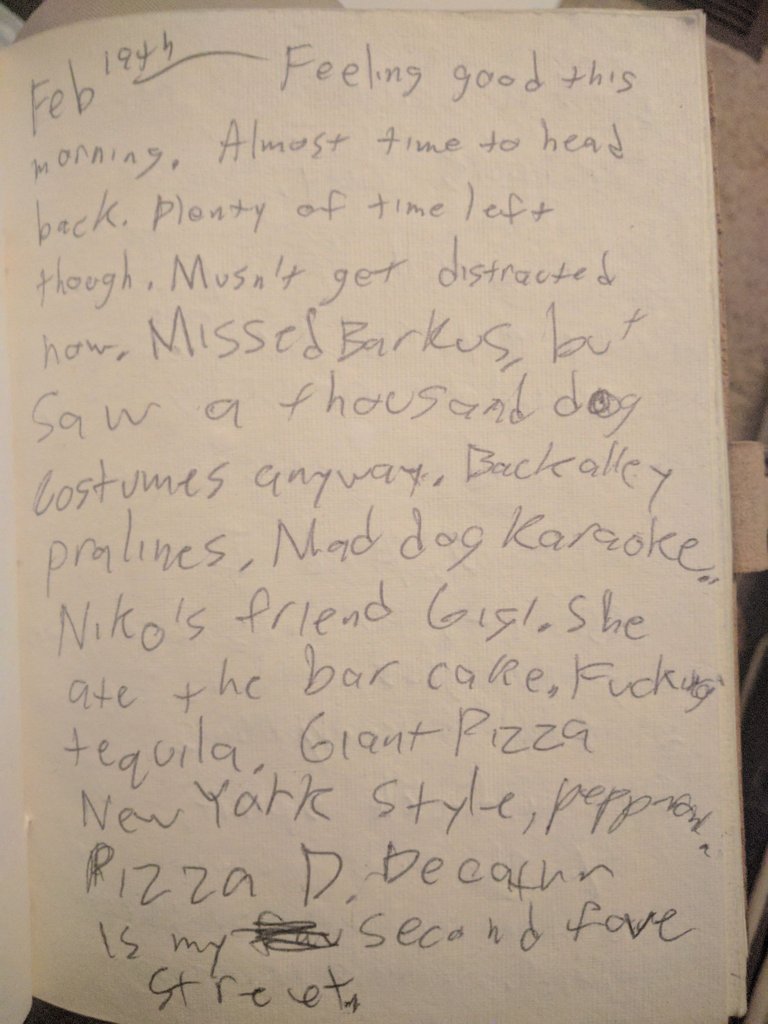 Feb 19th Feeling good this
morning. Almost time to head
back. Plenty of time left
though. Musn't get distracted
now. Missed Barkus, but
saw a thousand dog
costumes anyway. Back alley
pralines, Mad dog Karaoke,
Niko's friend Gigi. She
ate the bar cake. Fucking
tequila. Giant Pizza
New York Style,
Pizza D. Decatur
is my second fave
street.